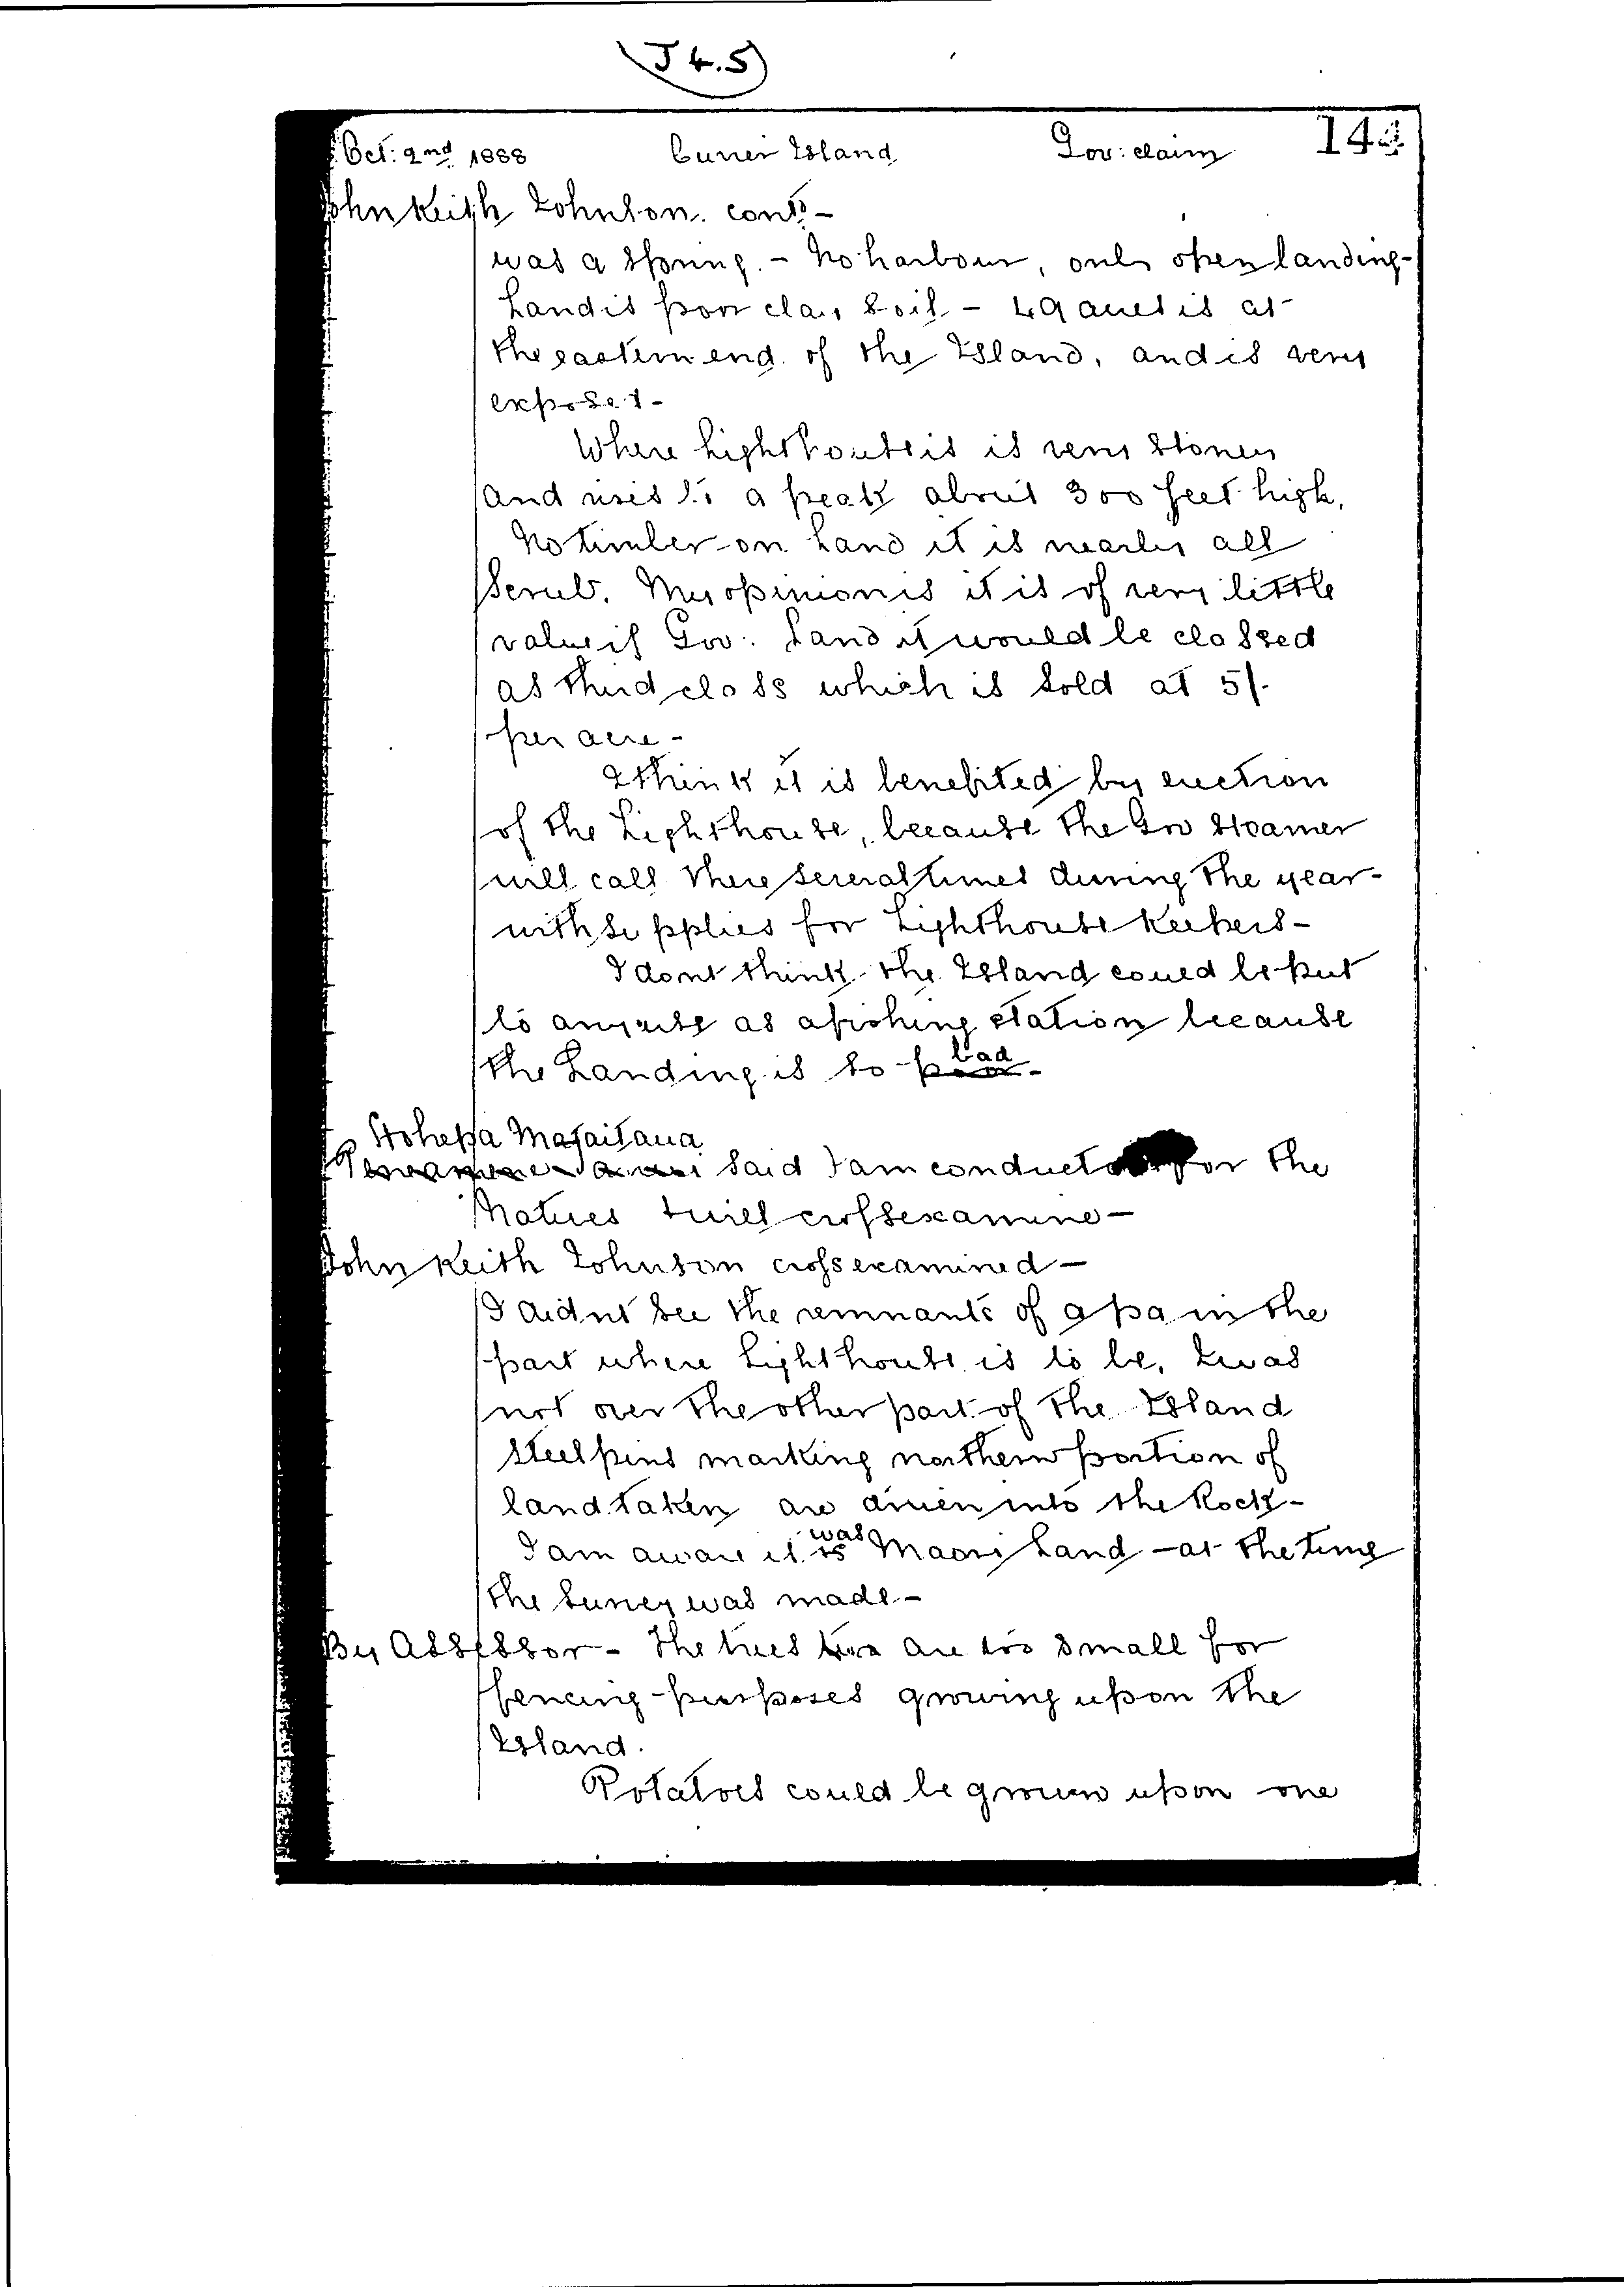 J 4.5
Oct: 2nd 1888 Cuvier Island Gov: claim 14
John Keith Johnson. contd -
was a spring. - No harbour, only open landing -
Land is poor clay soil - 49 acres is at
the eastern end of the Island, and is very
exposed -
Where lighthouse is is very stoney
and rises to a peak about 300 feet high,
No timber on Land it is nearly all
Scrub. My opinion is it is of very little
value if Gov: Land it would be classed
as third class which is sold at 5/-
per acre -
I think it is benefited by erection
of the Lighthouse, because the Gov Steamer
will call there several times during the year -
with supplies for Lighthouse Keepers -
I dont think the Island could be put
to any use as a fishing station because
the Landing is so poor bad -
Hohepa Mataitaua
said I am conductor for the
Natives & will cross examine -
John Keith Johnson cross examined -
I didnt see the remnants of a pa in the
part where Lighthouse is to be, I was
not over the other part of the Island
Steel pins marking northern portion of
land taken are driven into the Rock -
I am aware it is was Maori Land - at the time
the survey was made -
By Assessor - The trees are too small for
fencing purposes growing upon the
Island.
Potatoes could be grown upon one